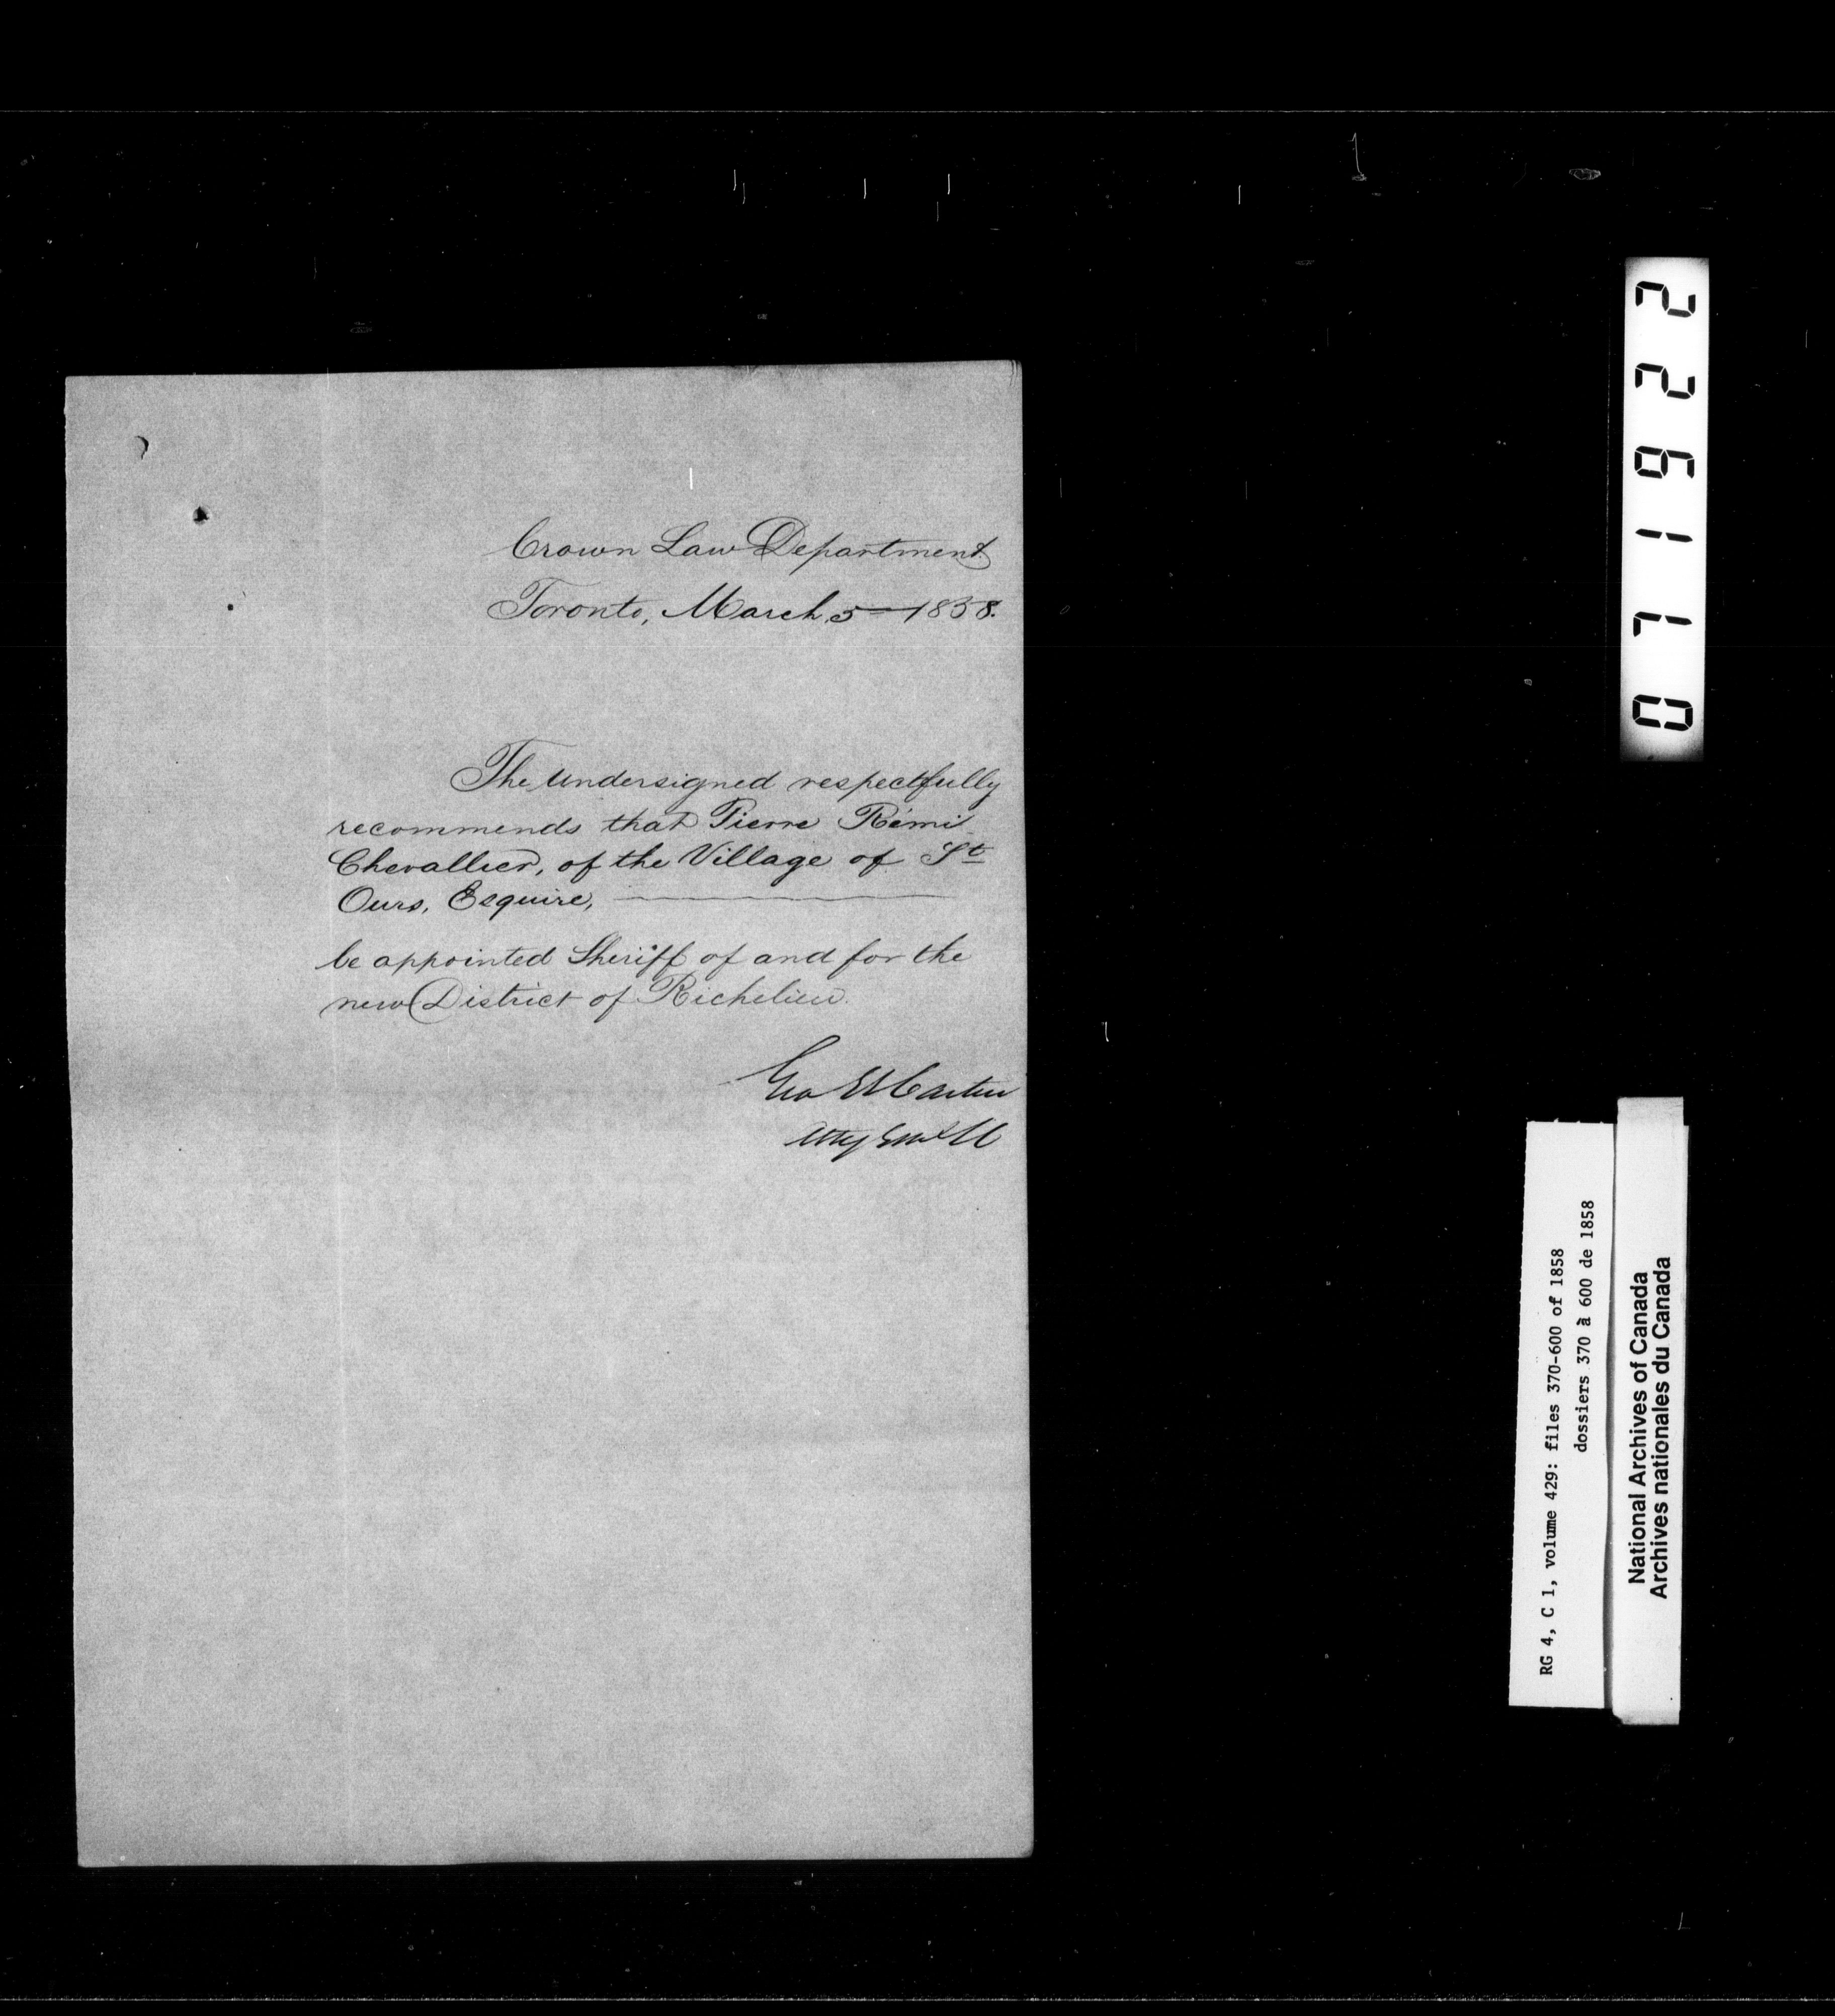 Crown Law Department
Toronto, March 5 — 1858.
The Undersigned respectfully
recommends that Pierre Rémi
Chevallier, of the Village of St
Ours, Esquire,
be appointed Sheriff of and for the
new District of Richelieu.
Geo Et Cartier
Atty Genl
071922
RG 4, C 1, volume 429: files 370-600 of 1858
dossiers 370 à 600 de 1858
National Archives of Canada
Archives nationales du Canada